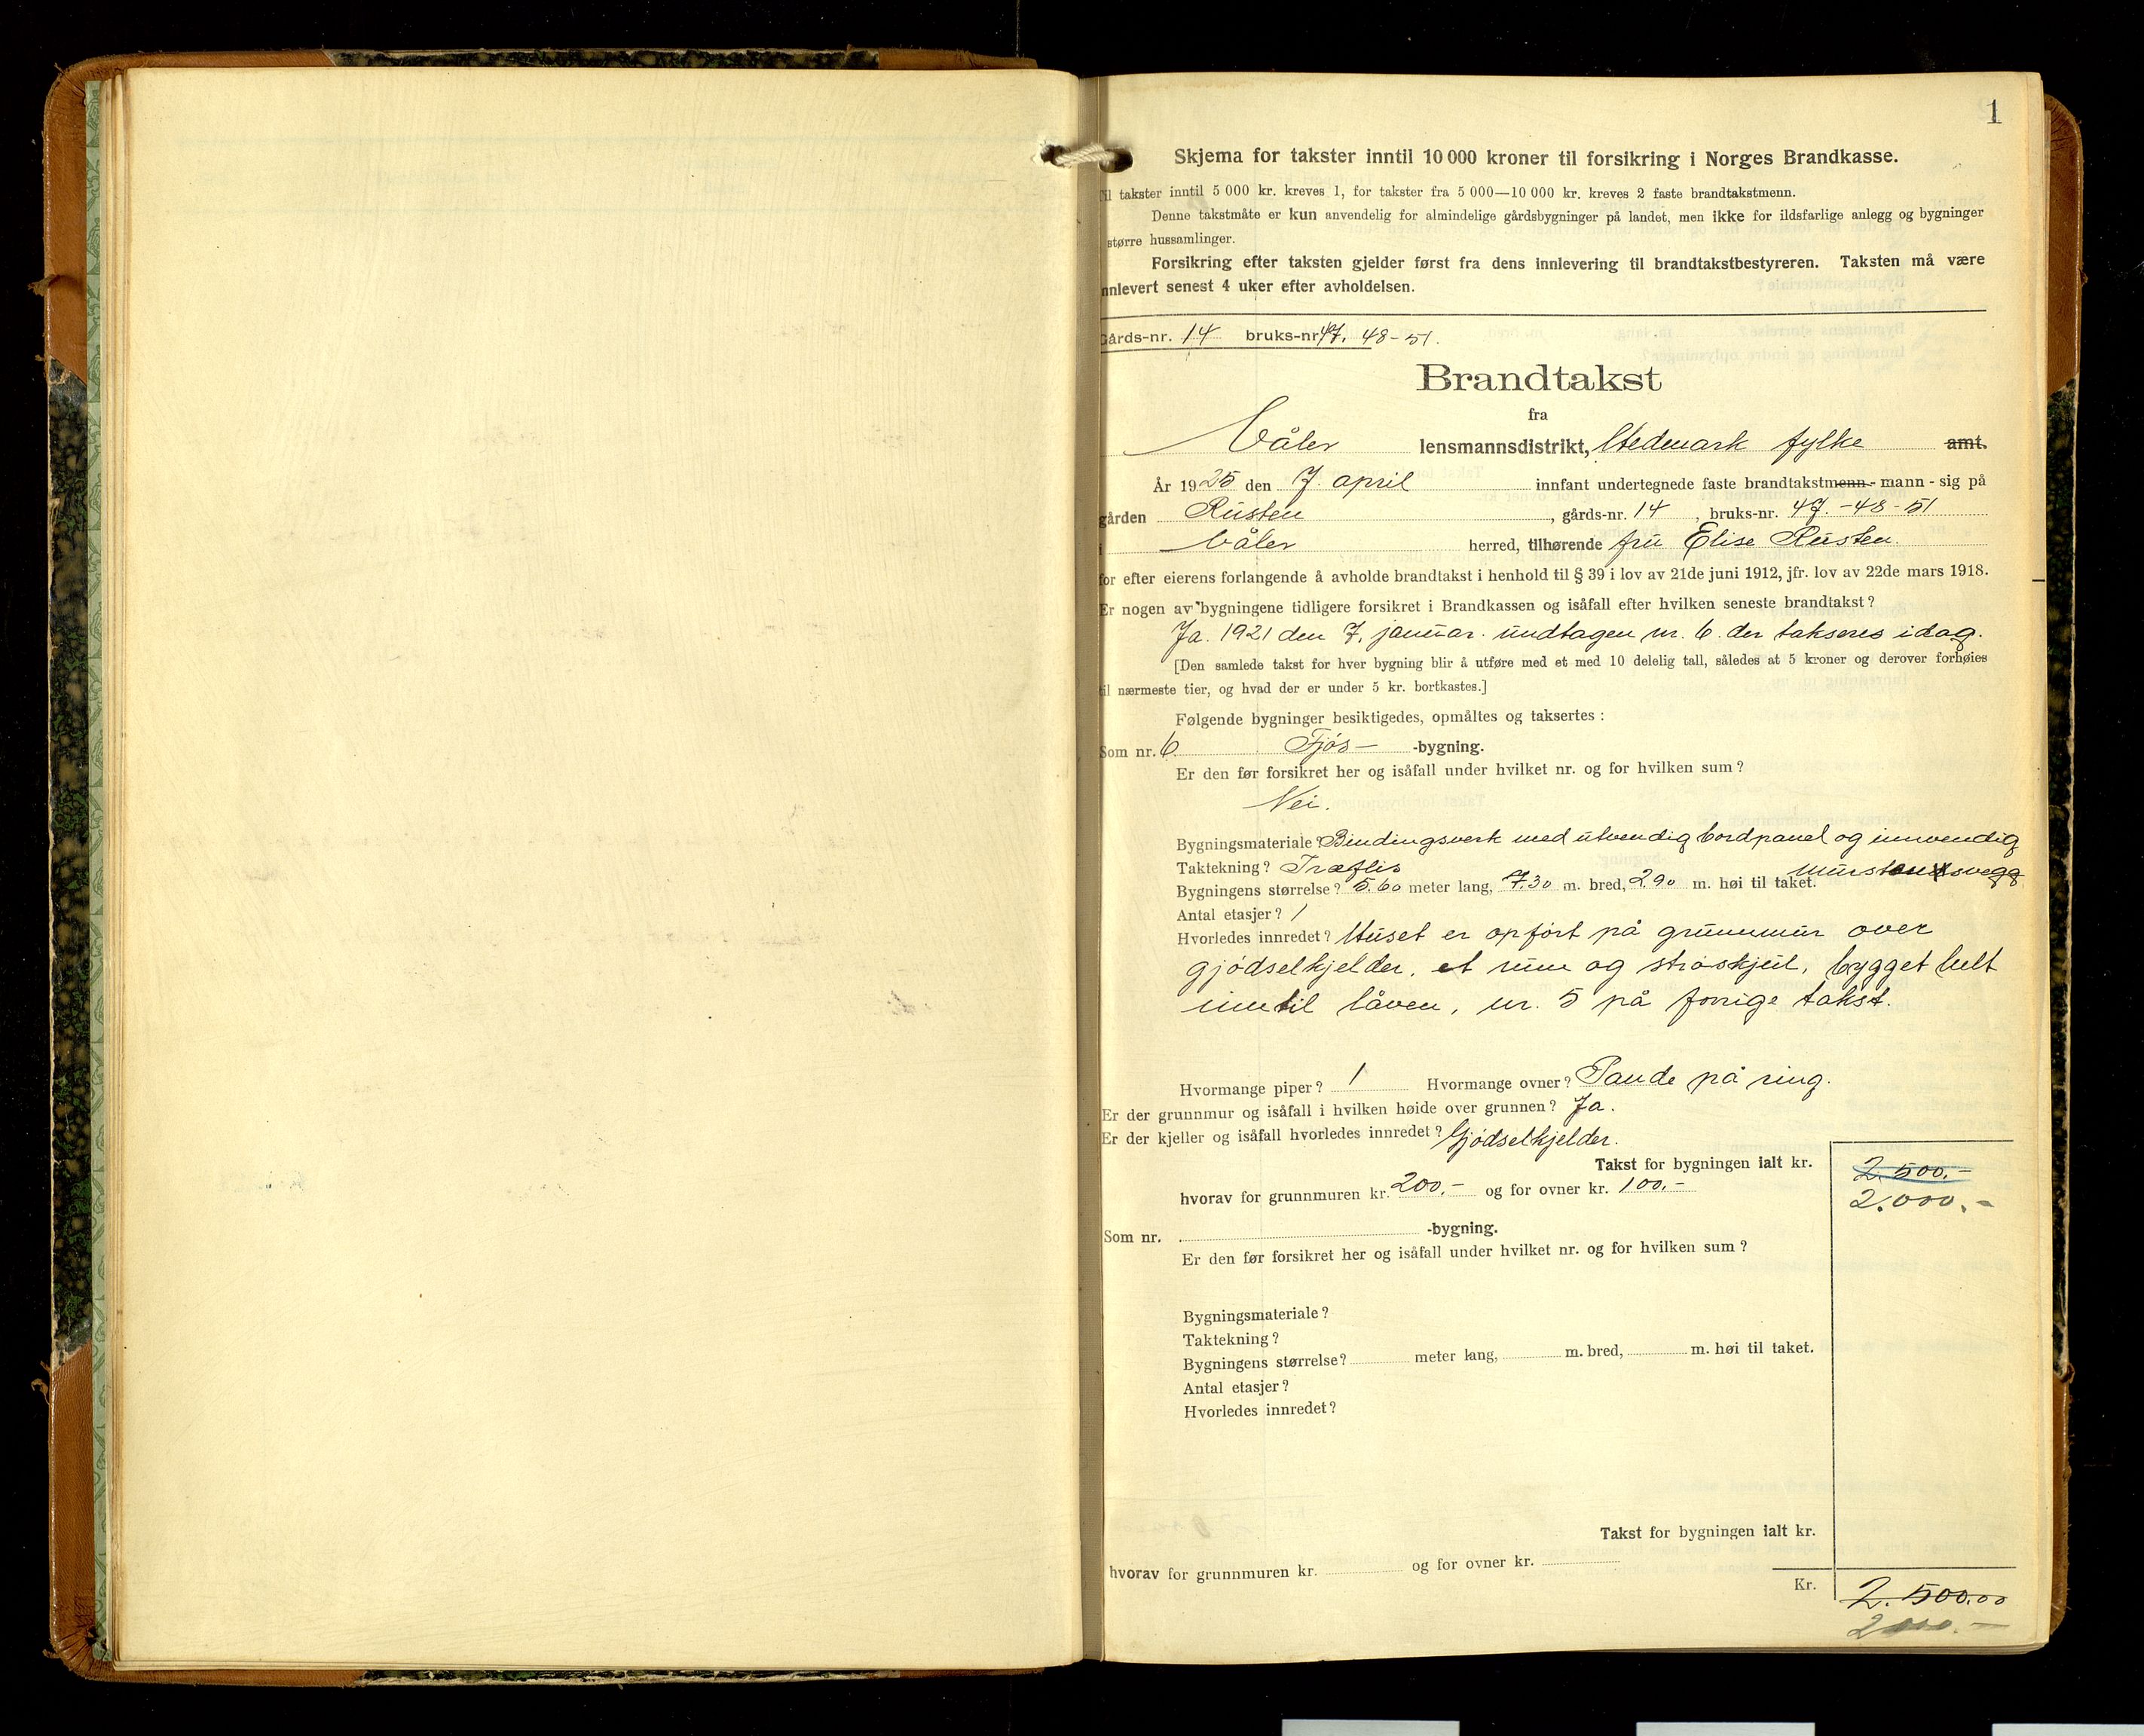 1
Skjema for takster inntil 10 000 kroner til forsikring i Norges Brandkasse.
il takster inntil 5 000 kr. kreves 1, for takster fra 5 000—10 000 kr. kreves 2 faste brandtakstmenn.
Denne takstmåte er kun anvendelig for almindelige gårdsbygninger på landet, men ikke for ildsfarlige anlegg og bygninger
større hussamlinger.
Forsikring efter taksten gjelder først fra dens innlevering til brandtakstbestyreren. Taksten må være
nnlevert senest 4 uker efter avholdelsen.
Gårds-nr. 14 bruks-nr. 47. 48-51.
Brandtakst
fra
Våler lensmannsdistrikt, Hedemark fylke amt.
År 1925 den 7. april innfant undertegnede faste brandtakstmenn - mann - sig på
gården Rusten, gårds-nr. 14, bruks-nr. 47.-48-51
i Våler herred, tilhørende fru Elise Rusten.
for efter eierens forlangende å avholde brandtakst i henhold til § 39 i lov av 21de juni 1912, jfr. lov av 22de mars 1918.
Er nogen av bygningene tidligere forsikret i Brandkassen og isåfall efter hvilken seneste brandtakst?
Ja. 1921 den 7. januar. undtagen nr. 6. der takseres idag.
[Den samlede takst for hver bygning blir å utføre med et med 10 delelig tall, således at 5 kroner og derover forhøies
til nærmeste tier, og hvad der er under 5 kr. bortkastes.]
Følgende bygninger besiktigedes, opmåltes og taksertes :
Som nr. 6. Fjøs- -bygning.
Er den før forsikret her og isåfall under hvilket nr. og for hvilken sum?
Nei.
Bygningsmateriale? Bindingsverk med utvendig bordpanel og innvendig
murstensvegg
Taktekning? Træflis
Bygningens størrelse? 5.60 meter lang, 7.30 m. bred, 2.90 m. høi til taket.
Antal etasjer? 1
Hvorledes innredet? Huset er opført på grunnmur over
gjødselkjelder, et rum og strøskjul, bygget helt
inntil låven, nr. 5 på forrige takst.
Hvormange piper? 1 Hvormange ovner? Pande på ring.
Er der grunnmur og isåfall i hvilken høide over grunnen? Ja.
Er der kjeller og isåfall hvorledes innredet? Gjødselkjelder.
Takst for bygningen ialt kr. 2.500.-
hvorav for grunnmuren kr. 200.- og for ovner kr. 100.- 2.000.-
Som nr. -bygning.
Er den før forsikret her og isåfall under hvilket nr. og for hvilken sum?
Bygningsmateriale?
Taktekning?
Bygningens størrelse? meter lang, m. bred, m. høi til taket.
Antal etasjer?
Hvorledes innredet?
Takst for bygningen ialt kr.
hvorav for grunnmuren kr. og for ovner kr.
Kr. 2.500.00
2000.-